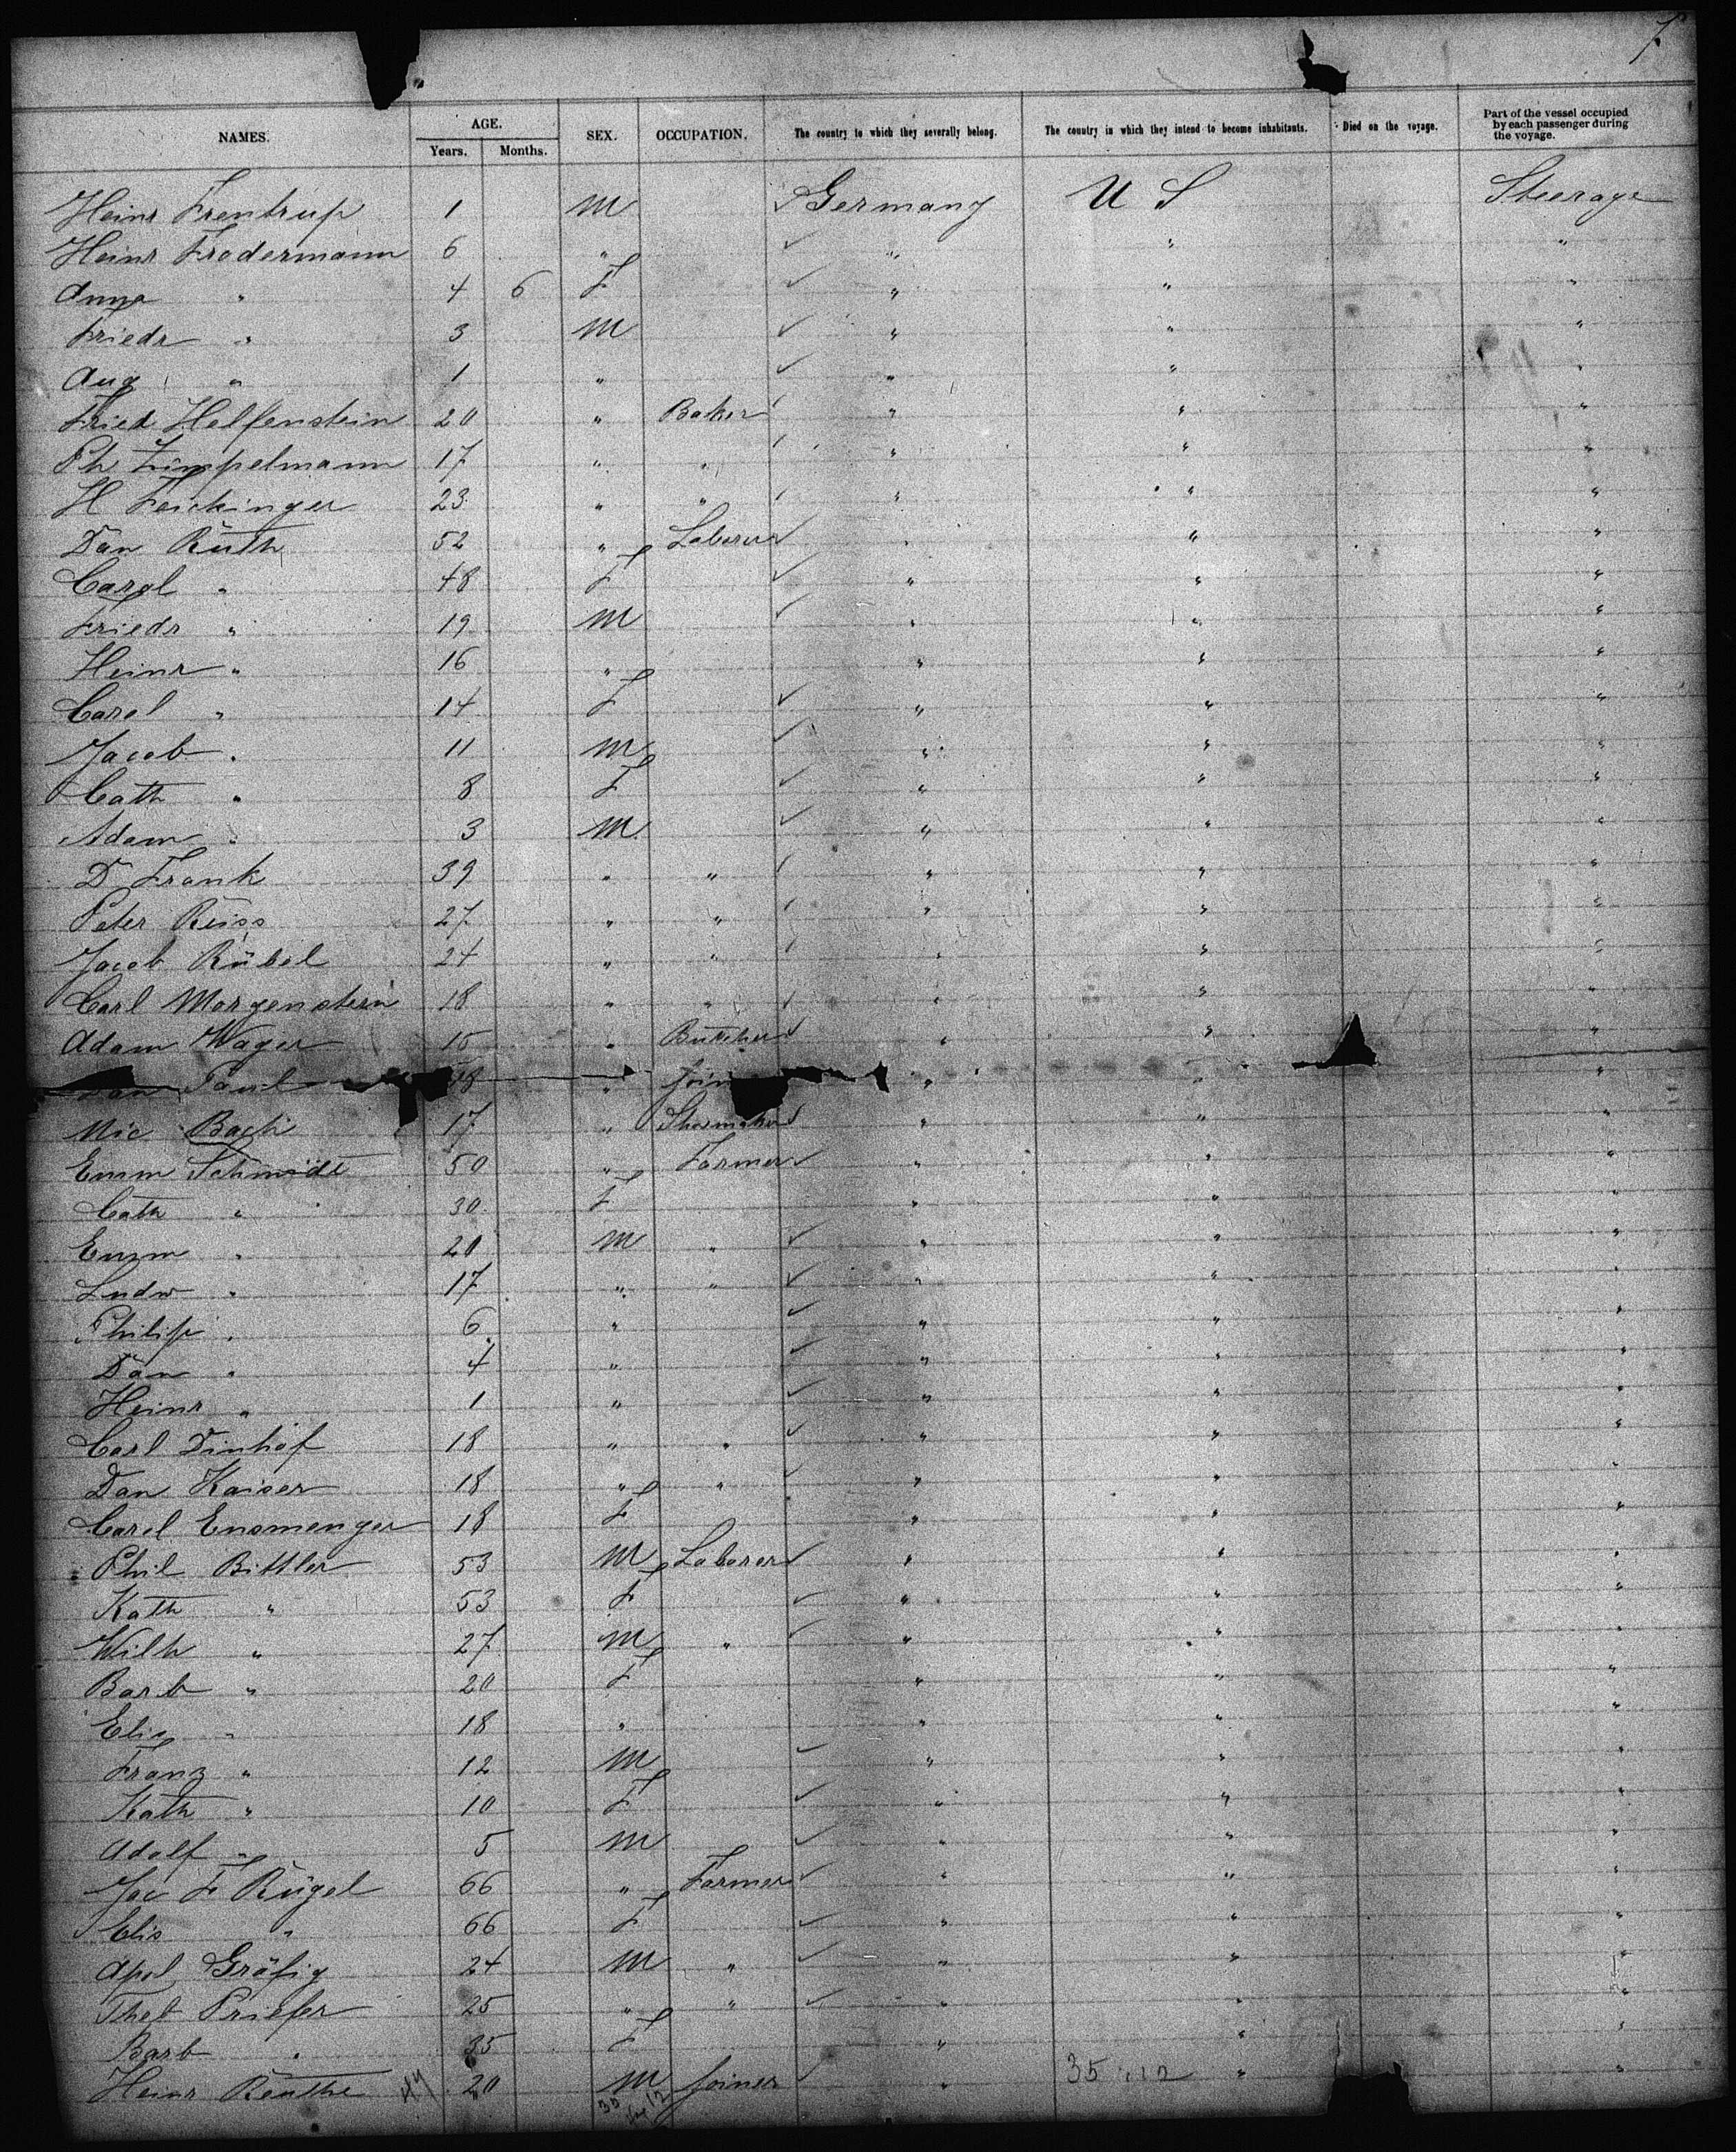 7
NAMES. AGE. Years. Months. SEX. OCCUPATION. The country to which they severally belong. The country in which they intend to become inhabitants. Died on the voyage. Part of the vessel occupied by each passenger during the voyage.
Heinr Frentrup 1 M Germany U S Steerage
Heinr Frodermann 6 " " " "
Anna " 4 6 F " " "
Friedr " 3 M " " "
Aug " 1 " " " "
Fried Helfenstein 20 " Baker " " "
Ph Zimpelmann 17 " " " " "
H Feickinger 23 " " " " "
Dan Ruth 52 " Laborer " " "
Carol " 48 F " " "
Friedr " 19 M " " "
Heinr " 16 " " " "
Carol " 14 F " " "
Jacob " 11 M " " "
Cath " 8 F " " "
Adam " 3 M " " "
D Frank 39 " " " " "
Peter Reiss 27 " " " " "
Jacob Rübel 24 " " " " "
Carl Morgenstern 18 " " " " "
Adam Wager 15 " Butcher " " "
Dan Paul 18 " Join " " "
Mic Bach 17 " Shoemaker " " "
Emm Schmidt 50 " Farmer " " "
Cath " 30 F " " "
Emm " 20 M " " " "
Ludw " 17 " " " " "
Philip " 6 " " " "
Dan " 4 " " " "
Heinr " 1 " " " "
Carl Dinhof 18 " " " " "
Dan Kaiser 18 " " " " "
Carol Ensmenger 18 F " " "
Phil Bittler 53 M Laborer " " "
Kath " 53 F " " "
Wilh " 27 M " " " "
Barb " 20 F " " "
Elis " 18 " " " "
Franz " 12 M " " "
Kath " 10 F " " "
Adolf " 5 M " " "
Jac F Rügel 66 " Farmer " " "
Elis " 66 F " " "
Apol Gräfig 24 M " " " "
Thet Priefer 25 " " " " "
Barb " 35 F " " "
Heinr Reuthe 20 M Joiner " 35 12 " "